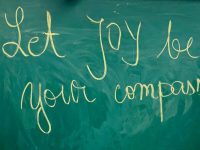 Let JOY be
your compass